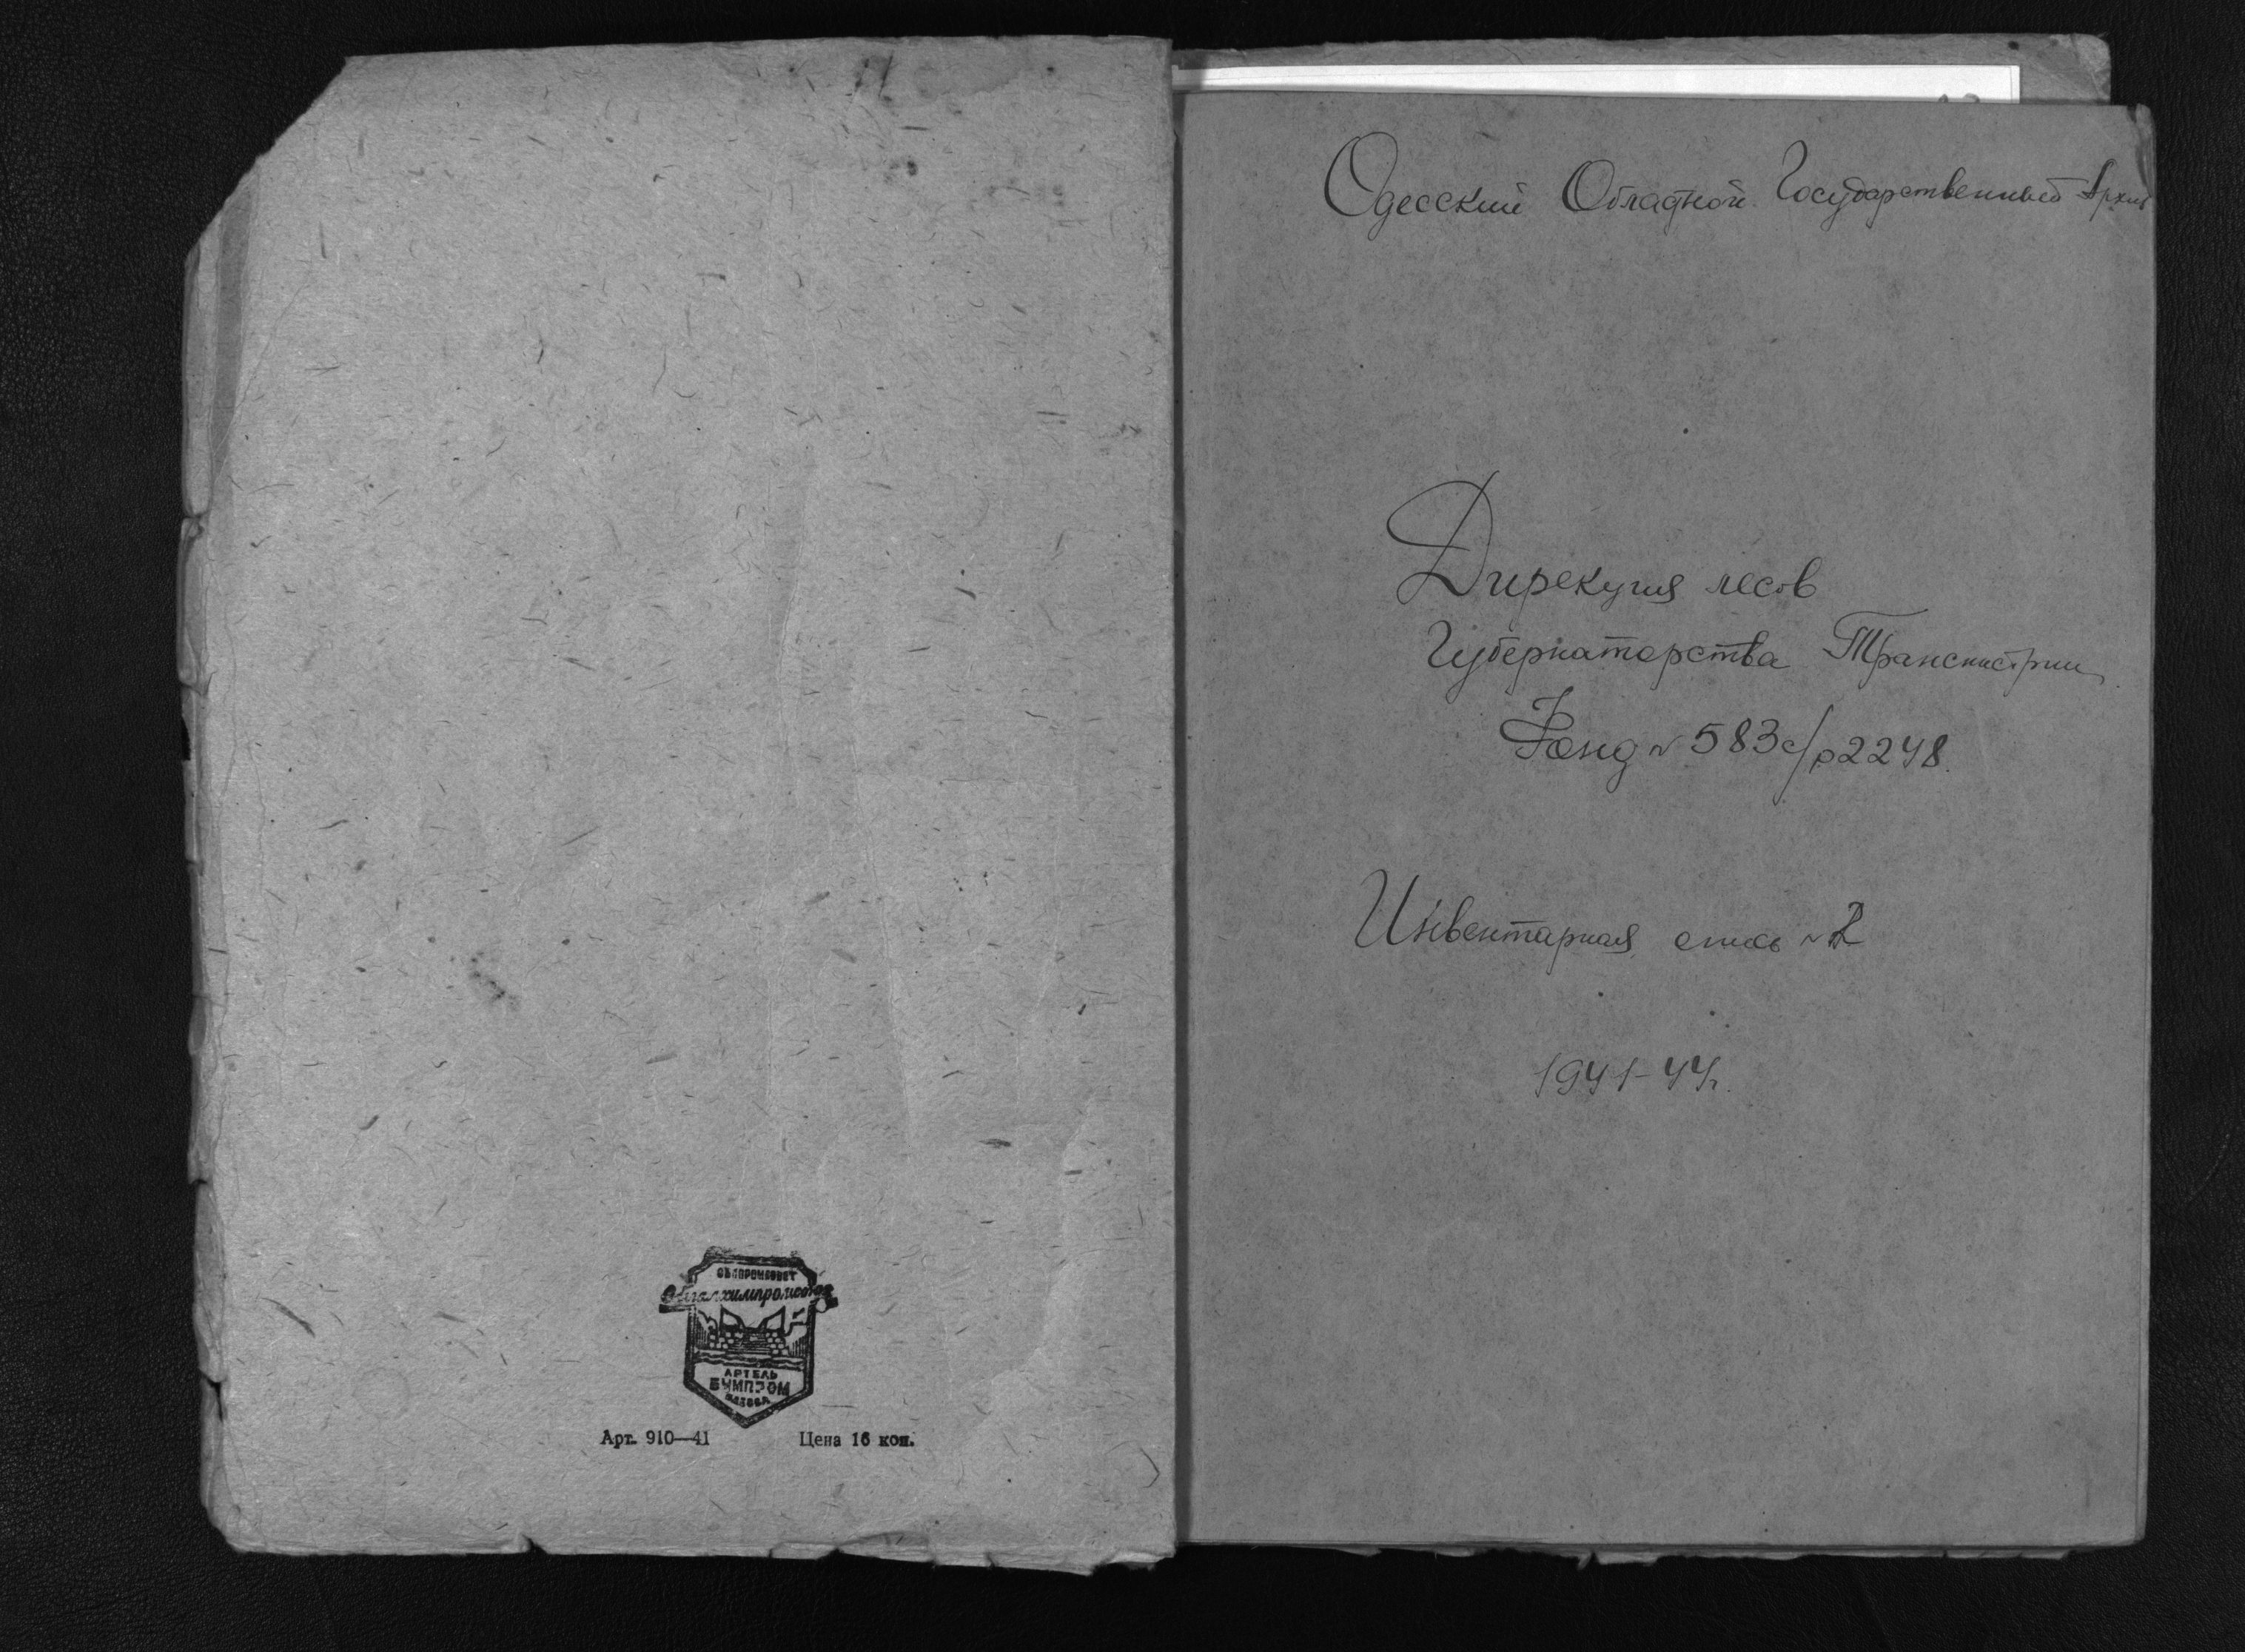 ОБЛПРОМСОВЕТ
АРТЕЛЬ
БУМПРОМ
Арт. 910—41 Цена 16 коп.
Одесский Областной Государственный Архив
Дирекция лесов
Губернаторства Транснистрии
Фонд № 583с/р2248.
Инвентарная опись №2
1941-44г.